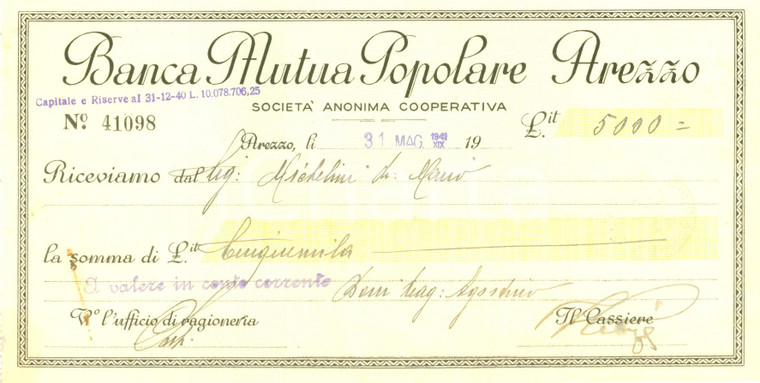 Banca Mutua Popolare Arezzo
Capitale e Riserve al 31-12-40 L. 10.078.706,25
SOCIETÀ ANONIMA COOPERATIVA
Nº 41098
£.it 5000=
Arezzo, li 31 MAG. 1941 XIX 19
Riceviamo dal Sig: Michelini Dr: Mario
la somma di £.it Cinquemila
A valere in conto corrente
Rag: Agostino
Vº l'ufficio di ragioneria
Il Cassiere